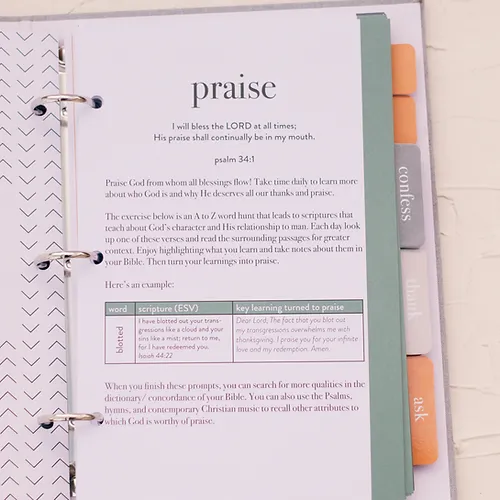 praise
I will bless the LORD at all times;
His praise shall continually be in my mouth.
psalm 34:1
Praise God from whom all blessings flow! Take time daily to learn more
about who God is and why He deserves all our thanks and praise.
The exercise below is an A to Z word hunt that leads to scriptures that
teach about God's character and His relationship to man. Each day look
up one of these verses and read the surrounding passages for greater
context. Enjoy highlighting what you learn and take notes about them in
your Bible. Then turn your learnings into praise.
Here's an example:
word scripture (ESV) key learning turned to praise
blotted
I have blotted out your trans-
gressions like a cloud and your
sins like a mist; return to me,
for I have redeemed you.
Isaiah 44:22
Dear Lord, The fact that you blot out
my transgressions overwhelms me with
thanksgiving. I praise you for your infinite
love and my redemption. Amen.
When you finish these prompts, you can search for more qualities in the
dictionary/ concordance of your Bible. You can also use the Psalms,
hymns, and contemporary Christian music to recall other attributes to
which God is worthy of praise.
confess
thank
ask